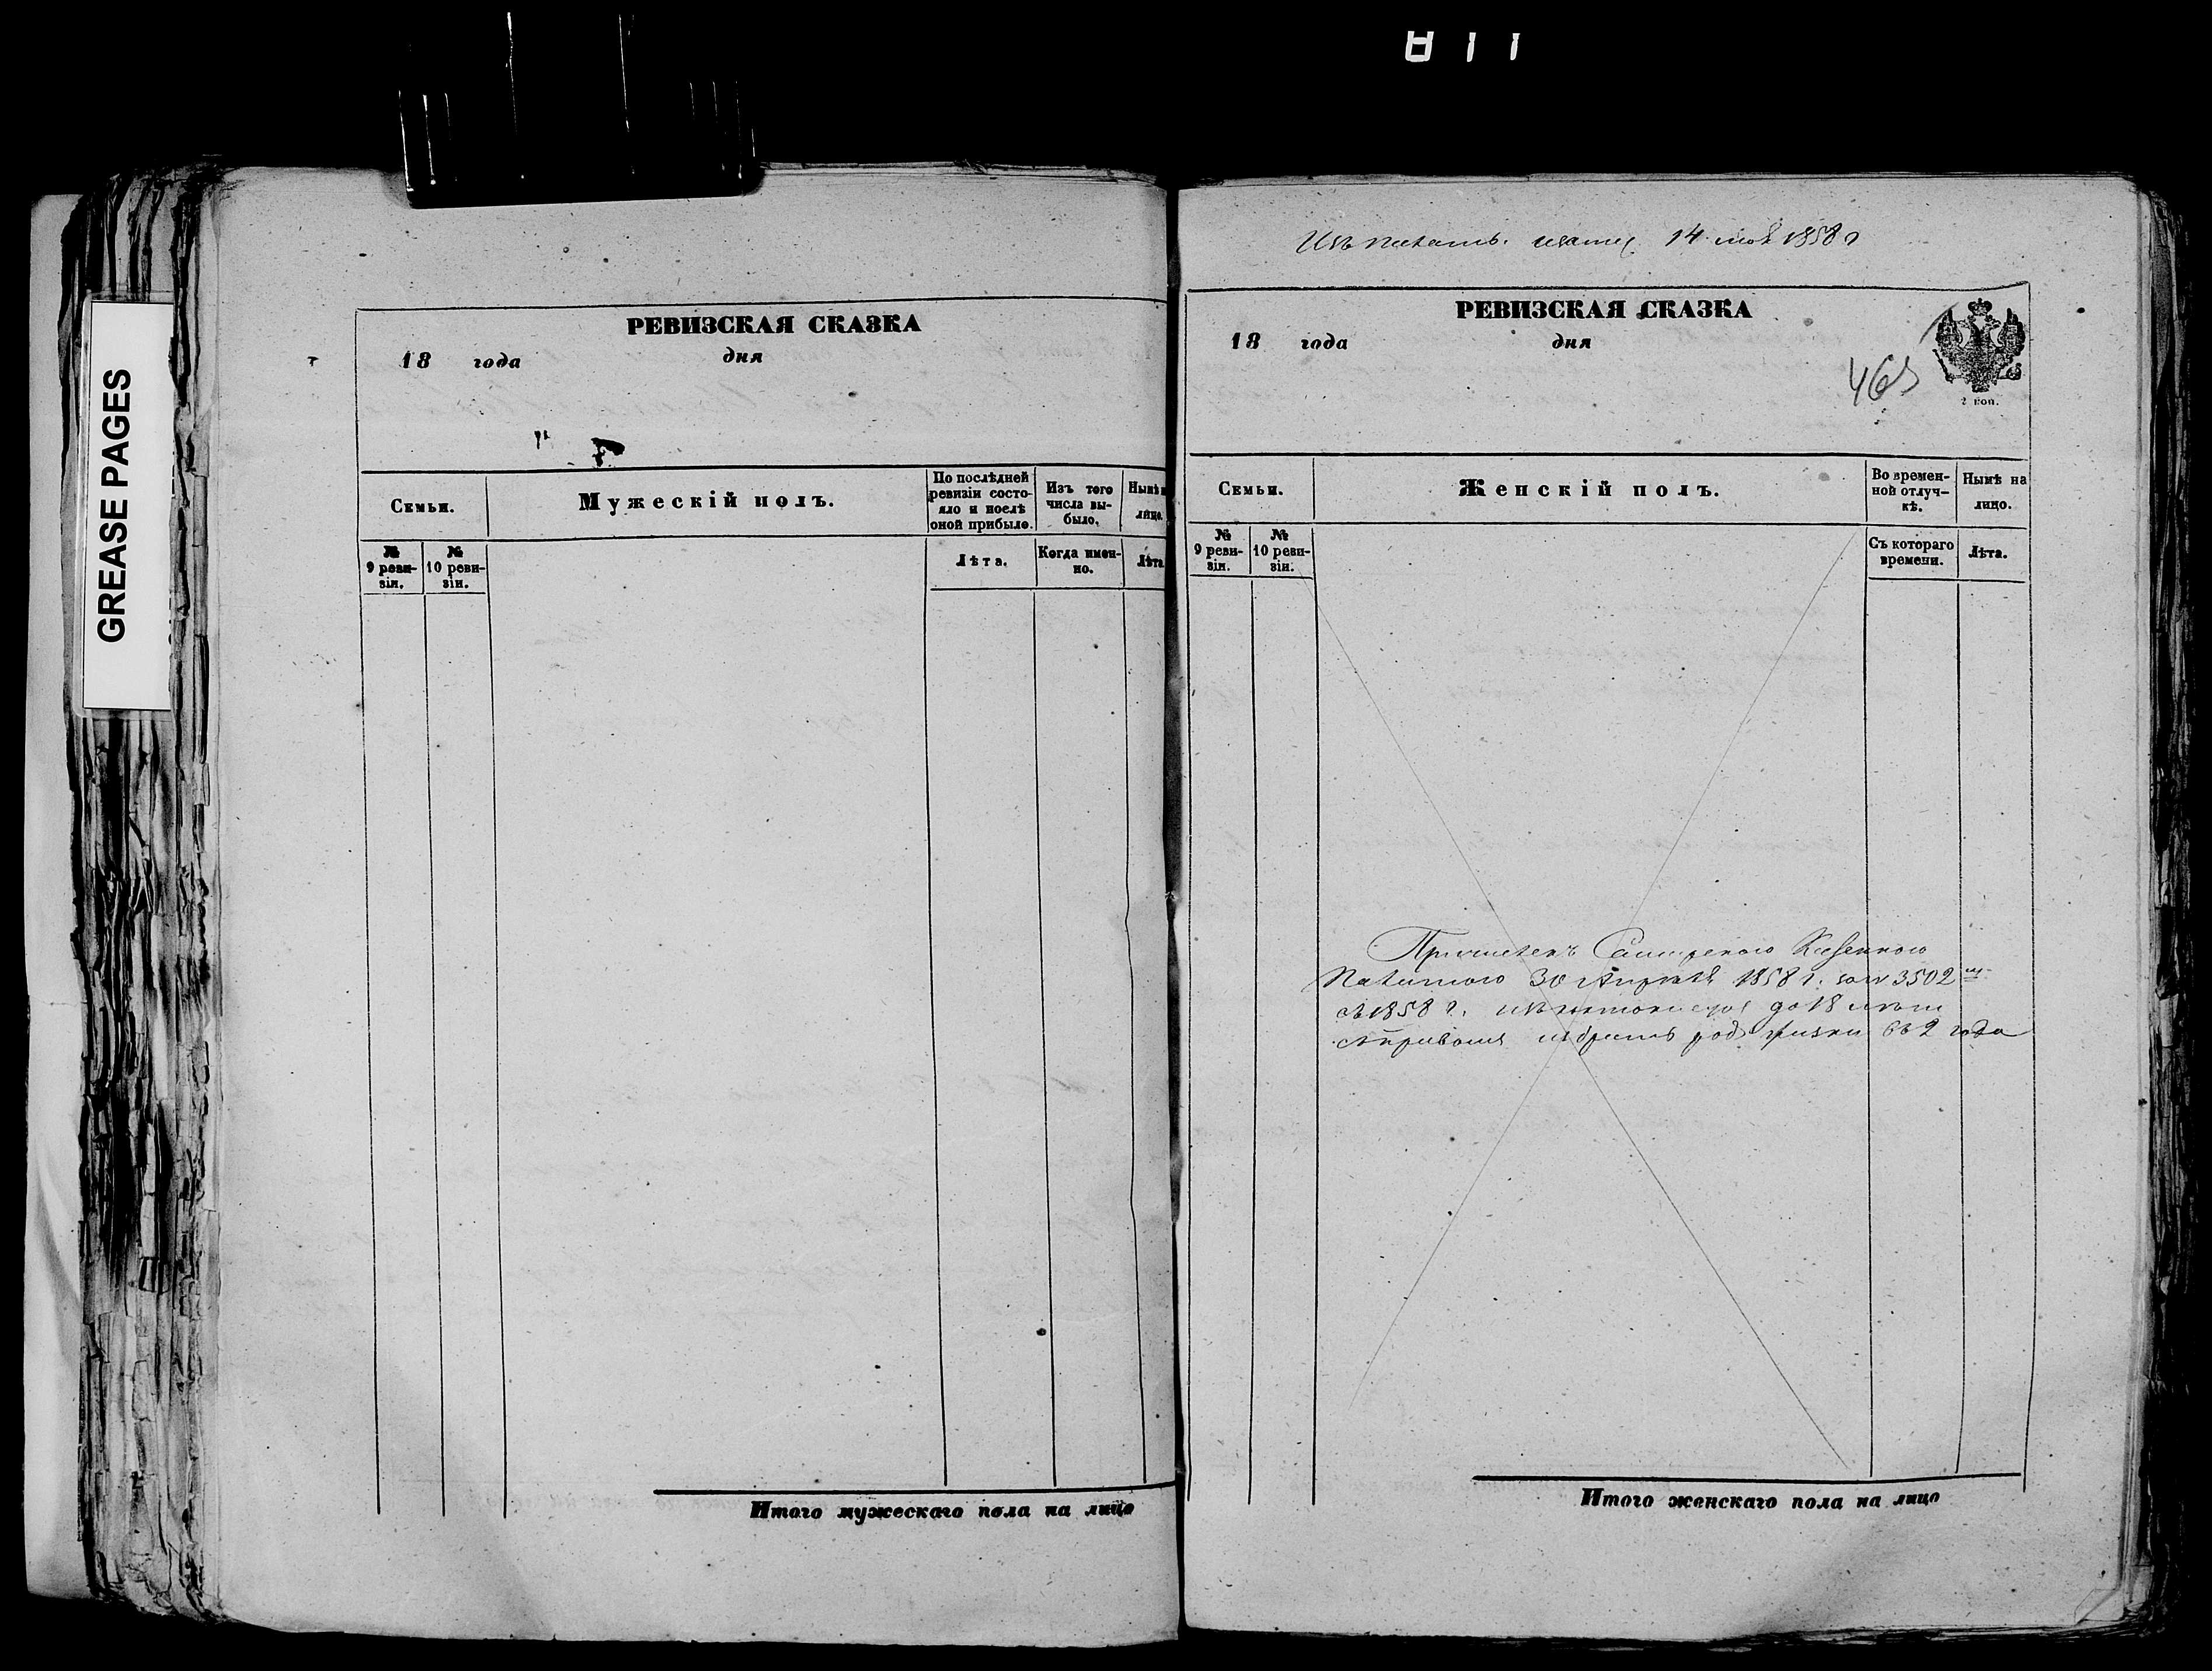 GREASE PAGES
РЕВИЗСКАЯ СКАЗКА
18 года дня
Семьи.
Мужескій полъ.
По послѣдней ревизіи состояло и послѣ оной прибыло.
Изъ того числа выбыло.
Нынѣ н
лицо.
№ 9 ревизіи.
№ 10 ревизіи.
Лѣта.
Когда именно.
Лѣта
Итого мужескаго пола на лицо
14 1858
РЕВИЗСКАЯ СКАЗКА
18 года дня
465
2 коп.
Семьи.
Женскій полъ.
Во временной отлучкѣ.
Нынѣ на лицо.
№ 9 ревизіи.
№ 10 ревизіи.
Съ котораго времени.
Лѣта.
Причисленъ Казенною
Палатою 30 Апрѣля 1858 г. за № 3502
съ 1858 г. до 18 лѣтъ
избрать родъ жизни въ 2 года
Итого женскаго пола на лицо